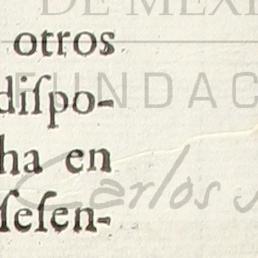 DE MEXI
otros
FUNDAC
diſpo-
ha en
Carlos
ſeſen-